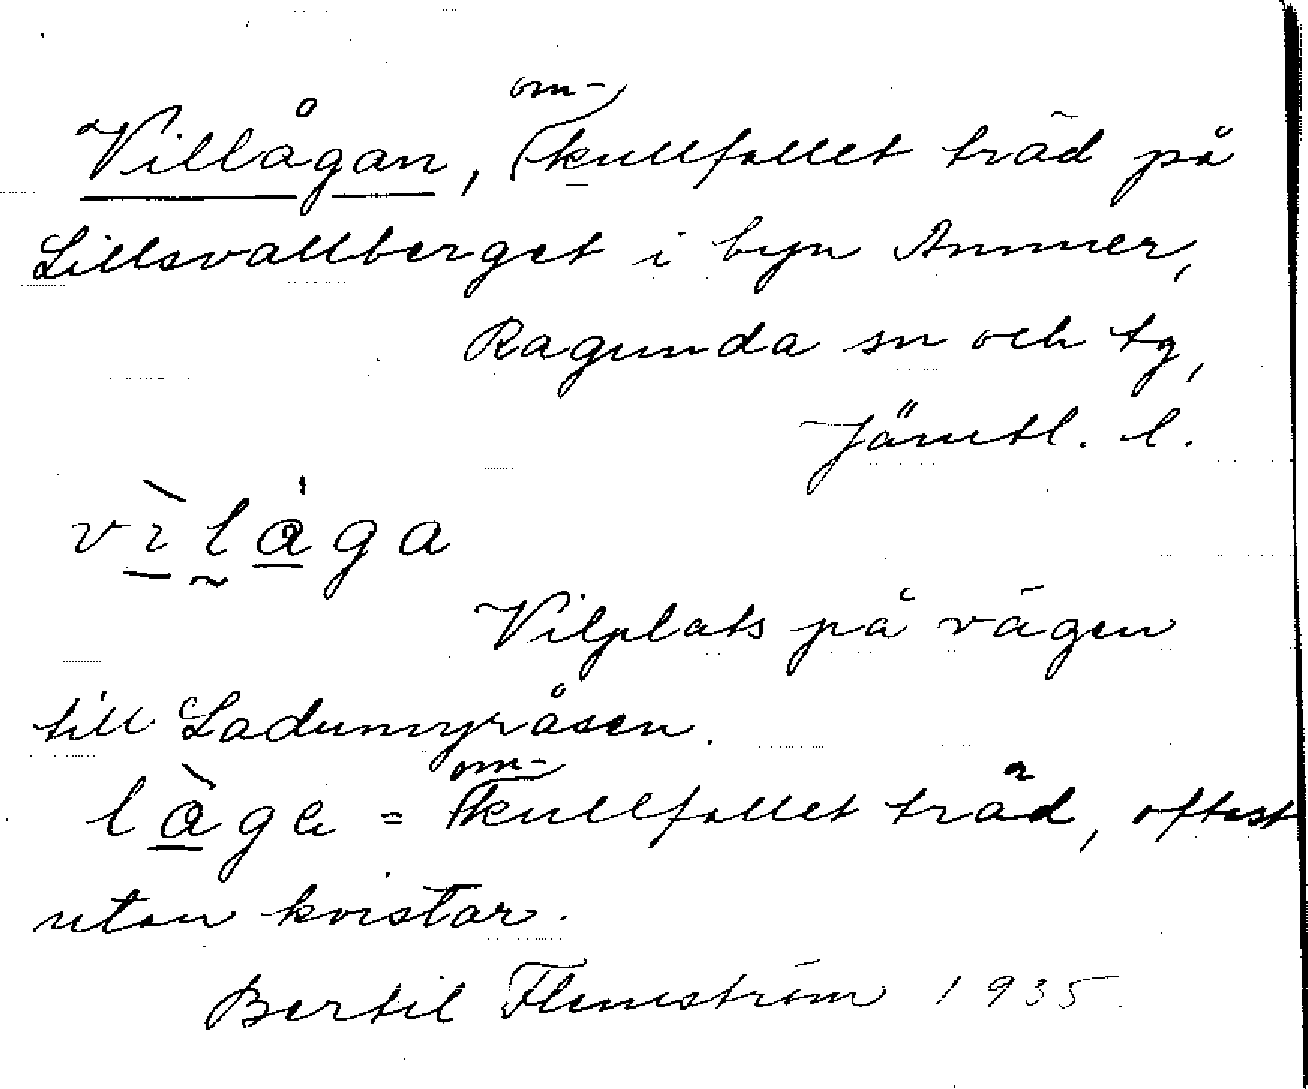 Villågan, omkullfallet träd på
Lillsvallberget i byn Ammer,
Ragunda sn och tg,
Jämtl. l.
vìlåga
Vilplats på vägen
till Ladumyråsen.
låga = omkullfallet träd, oftast
utan kvistar.
Bertil Flemström 1935.